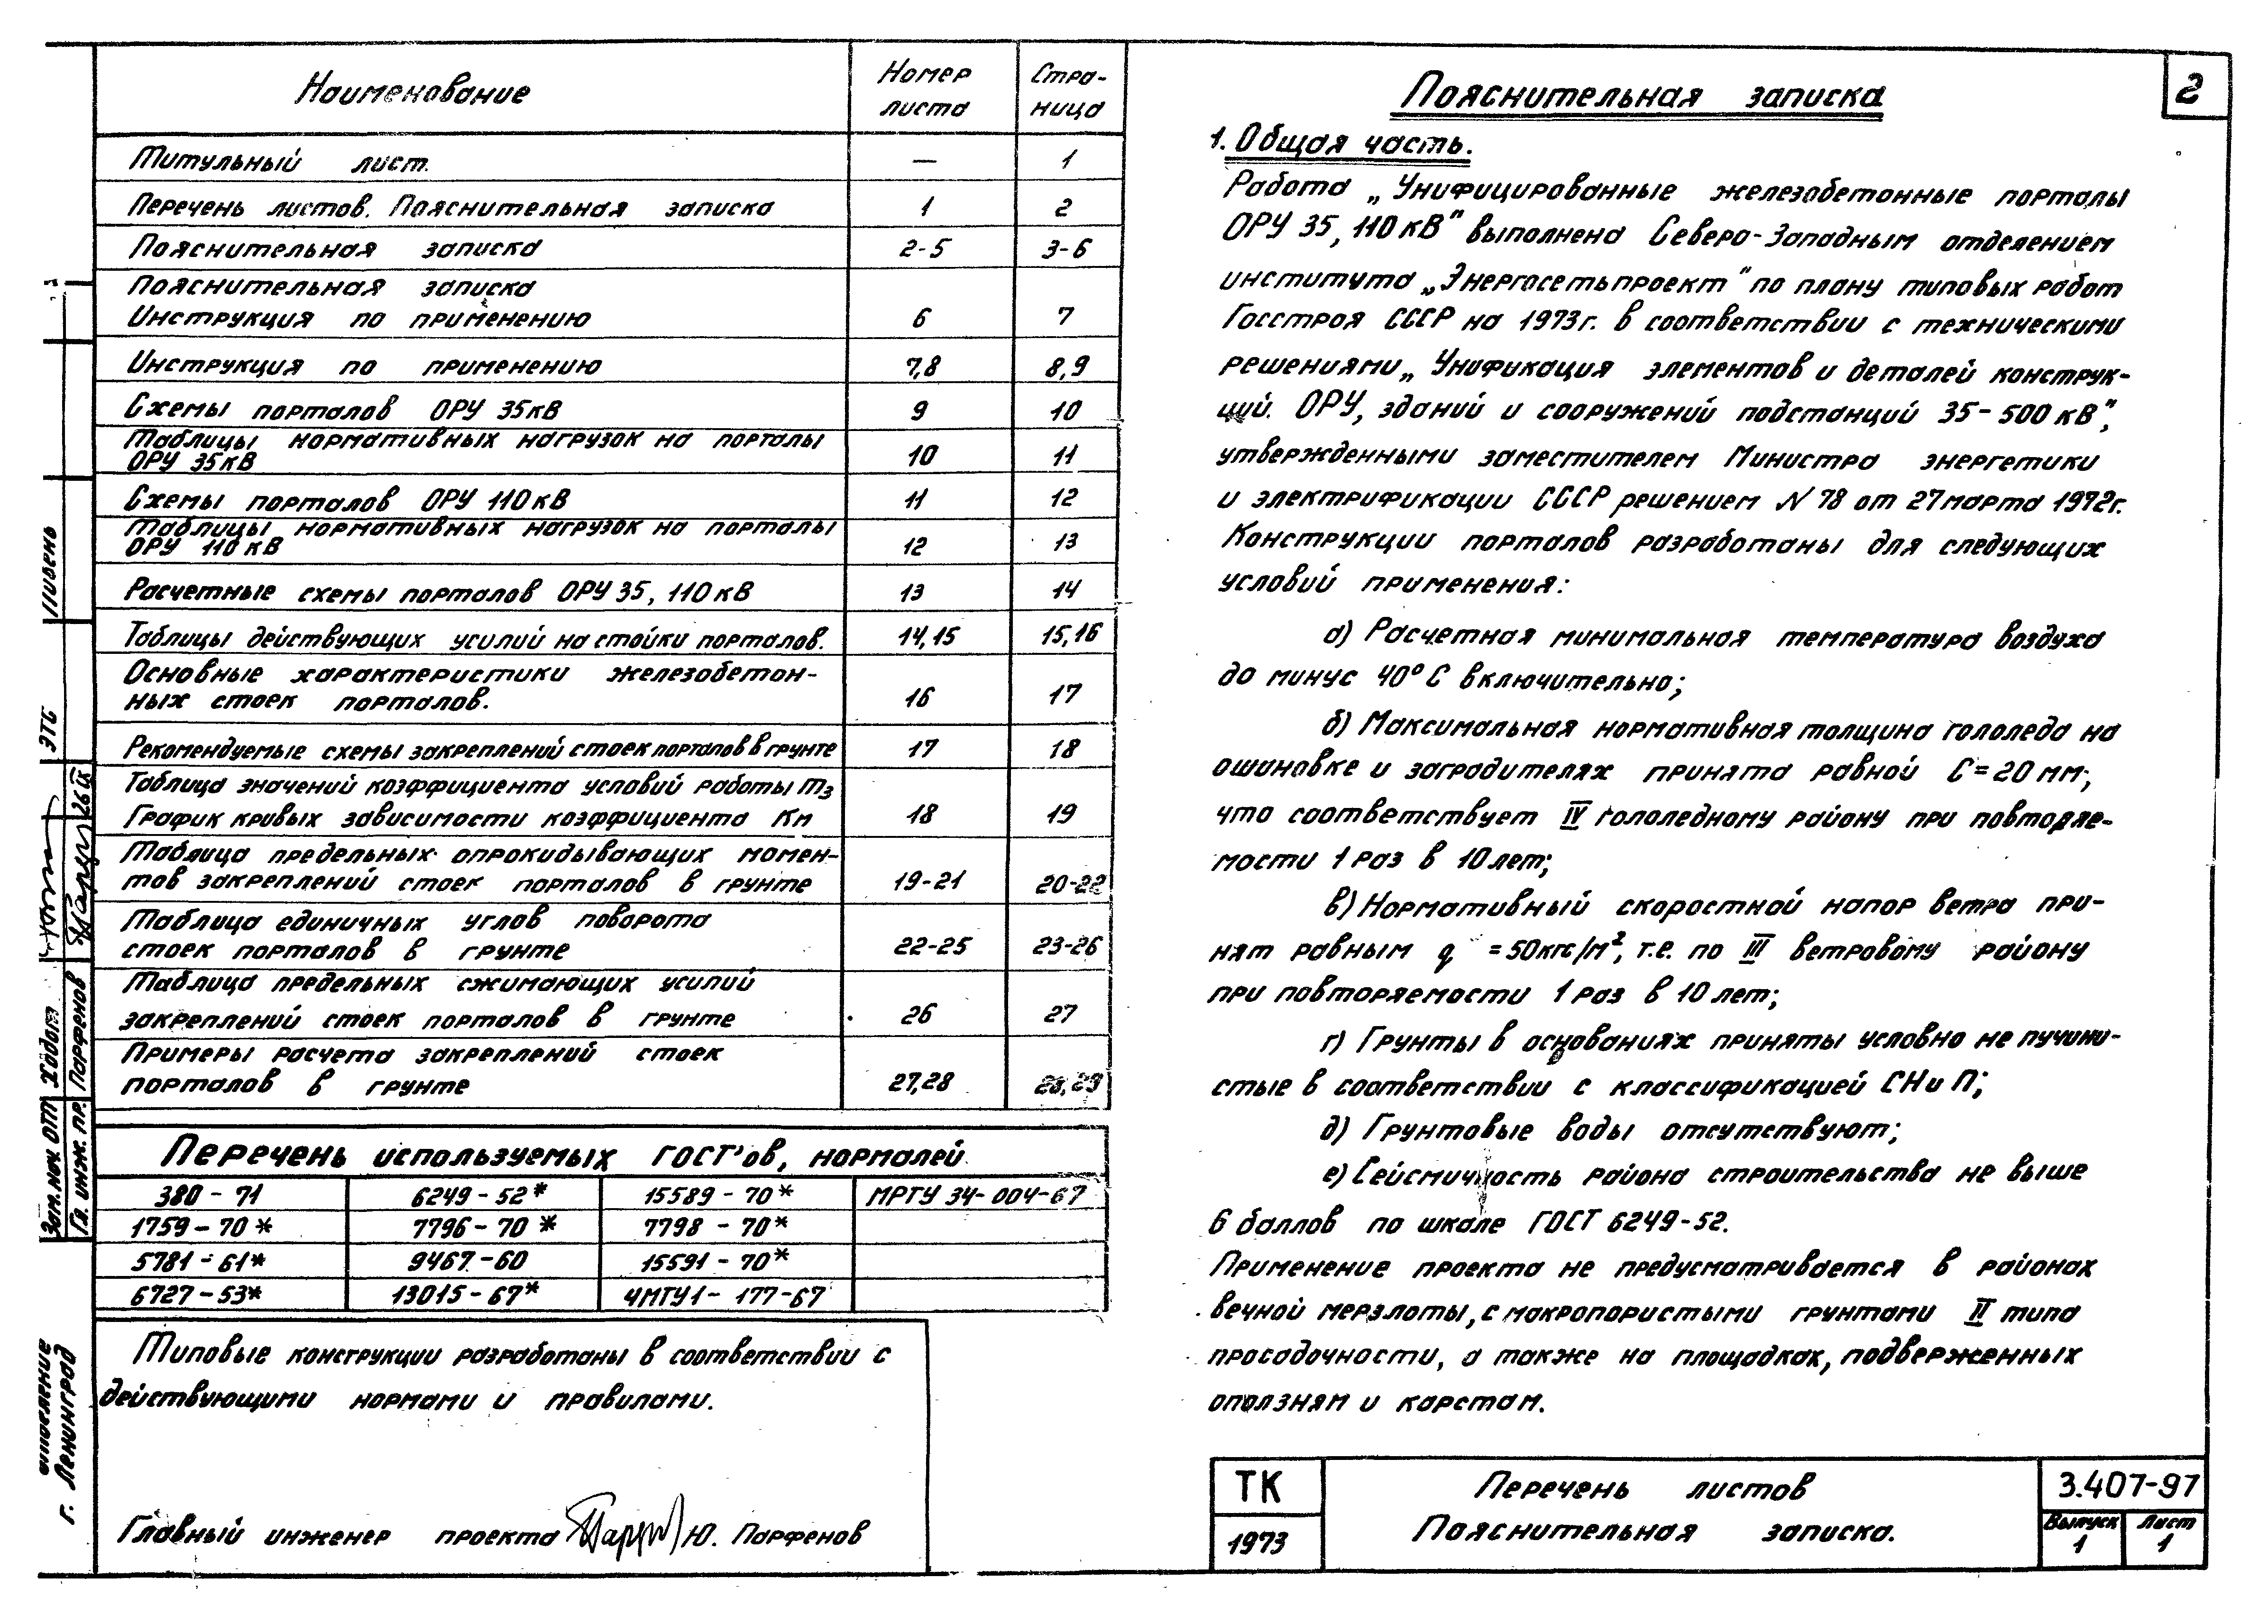 Наименование
Номер листа
Стра-ница
Титульный лист. — 1
Перечень листов. Пояснительная записка 1 2
Пояснительная записка 2-5 3-6
Пояснительная записка
Инструкция по применению 6 7
Инструкция по применению 7,8 8,9
Схемы порталов ОРУ 35кВ 9 10
Таблицы нормативных нагрузок на порталы
ОРУ 35кВ 10 11
Схемы порталов ОРУ 110кВ 11 12
Таблицы нормативных нагрузок на порталы
ОРУ 110кВ 12 13
Расчетные схемы порталов ОРУ 35, 110кВ 13 14
Таблицы действующих усилий на стойки порталов. 14,15 15,16
Основные характеристики железобетон-
ных стоек порталов. 16 17
Рекомендуемые схемы закреплений стоек порталов в грунте 17 18
Таблица значений коэффициента условий работы m3
График кривых зависимости коэффициента Кн 18 19
Таблица предельных опрокидывающих момен-
тов закреплений стоек порталов в грунте 19-21 20-22
Таблица единичных углов поворота
стоек порталов в грунте 22-25 23-26
Таблица предельных сжимающих усилий
закреплений стоек порталов в грунте 26 27
Примеры расчета закреплений стоек
порталов в грунте 27,28 28,29
Перечень используемых ГОСТ'ов, нормалей
380-71 6249-52* 15589-70* МРТУ 34-004-67
1759-70* 7796-70* 7798-70*
5781-61* 9467-60 15591-70*
6727-53* 13015-67* ЧМТУ1-177-67
Типовые конструкции разработаны в соответствии с
действующими нормами и правилами.
Главный инженер проекта Ю. Парфенов
ЭТС
Зам. нач. ОТП Ходот
Гл. инж. пр. Парфенов
г. Ленинград
2
Пояснительная записка
1. Общая часть.
Работа „Унифицированные железобетонные порталы
ОРУ 35, 110кВ" выполнена Северо-Западным отделением
института „Энергосетьпроект" по плану типовых работ
Госстроя СССР на 1973г. в соответствии с техническими
решениями „Унификация элементов и деталей конструк-
ций. ОРУ, зданий и сооружений подстанций 35-500кВ",
утвержденными заместителем Министра энергетики
и электрификации СССР решением N 78 от 27 марта 1972г.
Конструкции порталов разработаны для следующих
условий применения:
а) Расчетная минимальная температура воздуха
до минус 40°С включительно;
б) Максимальная нормативная толщина гололеда на
ошиновке и заградителях принята равной С=20мм,
что соответствует IV гололедному району при повторяе-
мости 1 раз в 10 лет;
в) Нормативный скоростной напор ветра при-
нят равным q =50кгс/м², т.е. по III ветровому району
при повторяемости 1 раз в 10 лет;
г) Грунты в основаниях приняты условно не пучини-
стые в соответствии с классификацией СНиП;
д) Грунтовые воды отсутствуют;
е) Сейсмичность района строительства не выше
6 баллов по шкале ГОСТ 6249-52.
Применение проекта не предусматривается в районах
вечной мерзлоты, с макропористыми грунтами II типа
просадочности, а также на площадках, подверженных
оползням и карстам.
ТК
1973
Перечень листов
Пояснительная записка.
3.407-97
Выпуск Лист
1 1